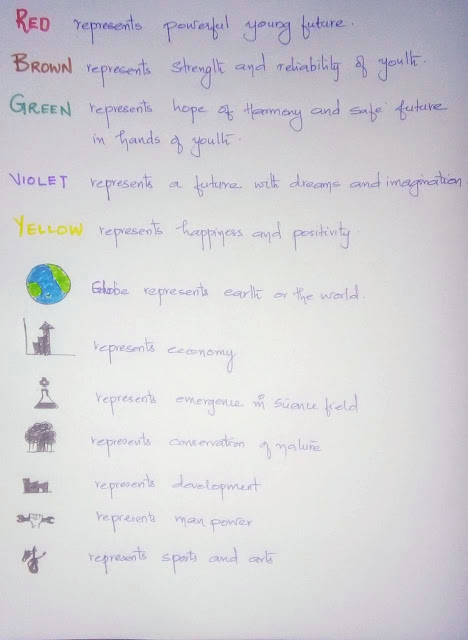 RED represents powerful young future.
BROWN represents strength and reliability of youth.
GREEN represents hope of Harmony and safe future
in hands of youth.
VIOLET represents a future with dreams and imagination.
YELLOW represents happiness and positivity.
Globe represents earth or the world.
represents economy
represents emergence in science field
represents conservation of nature
represents development
represents man power
represents sports and arts